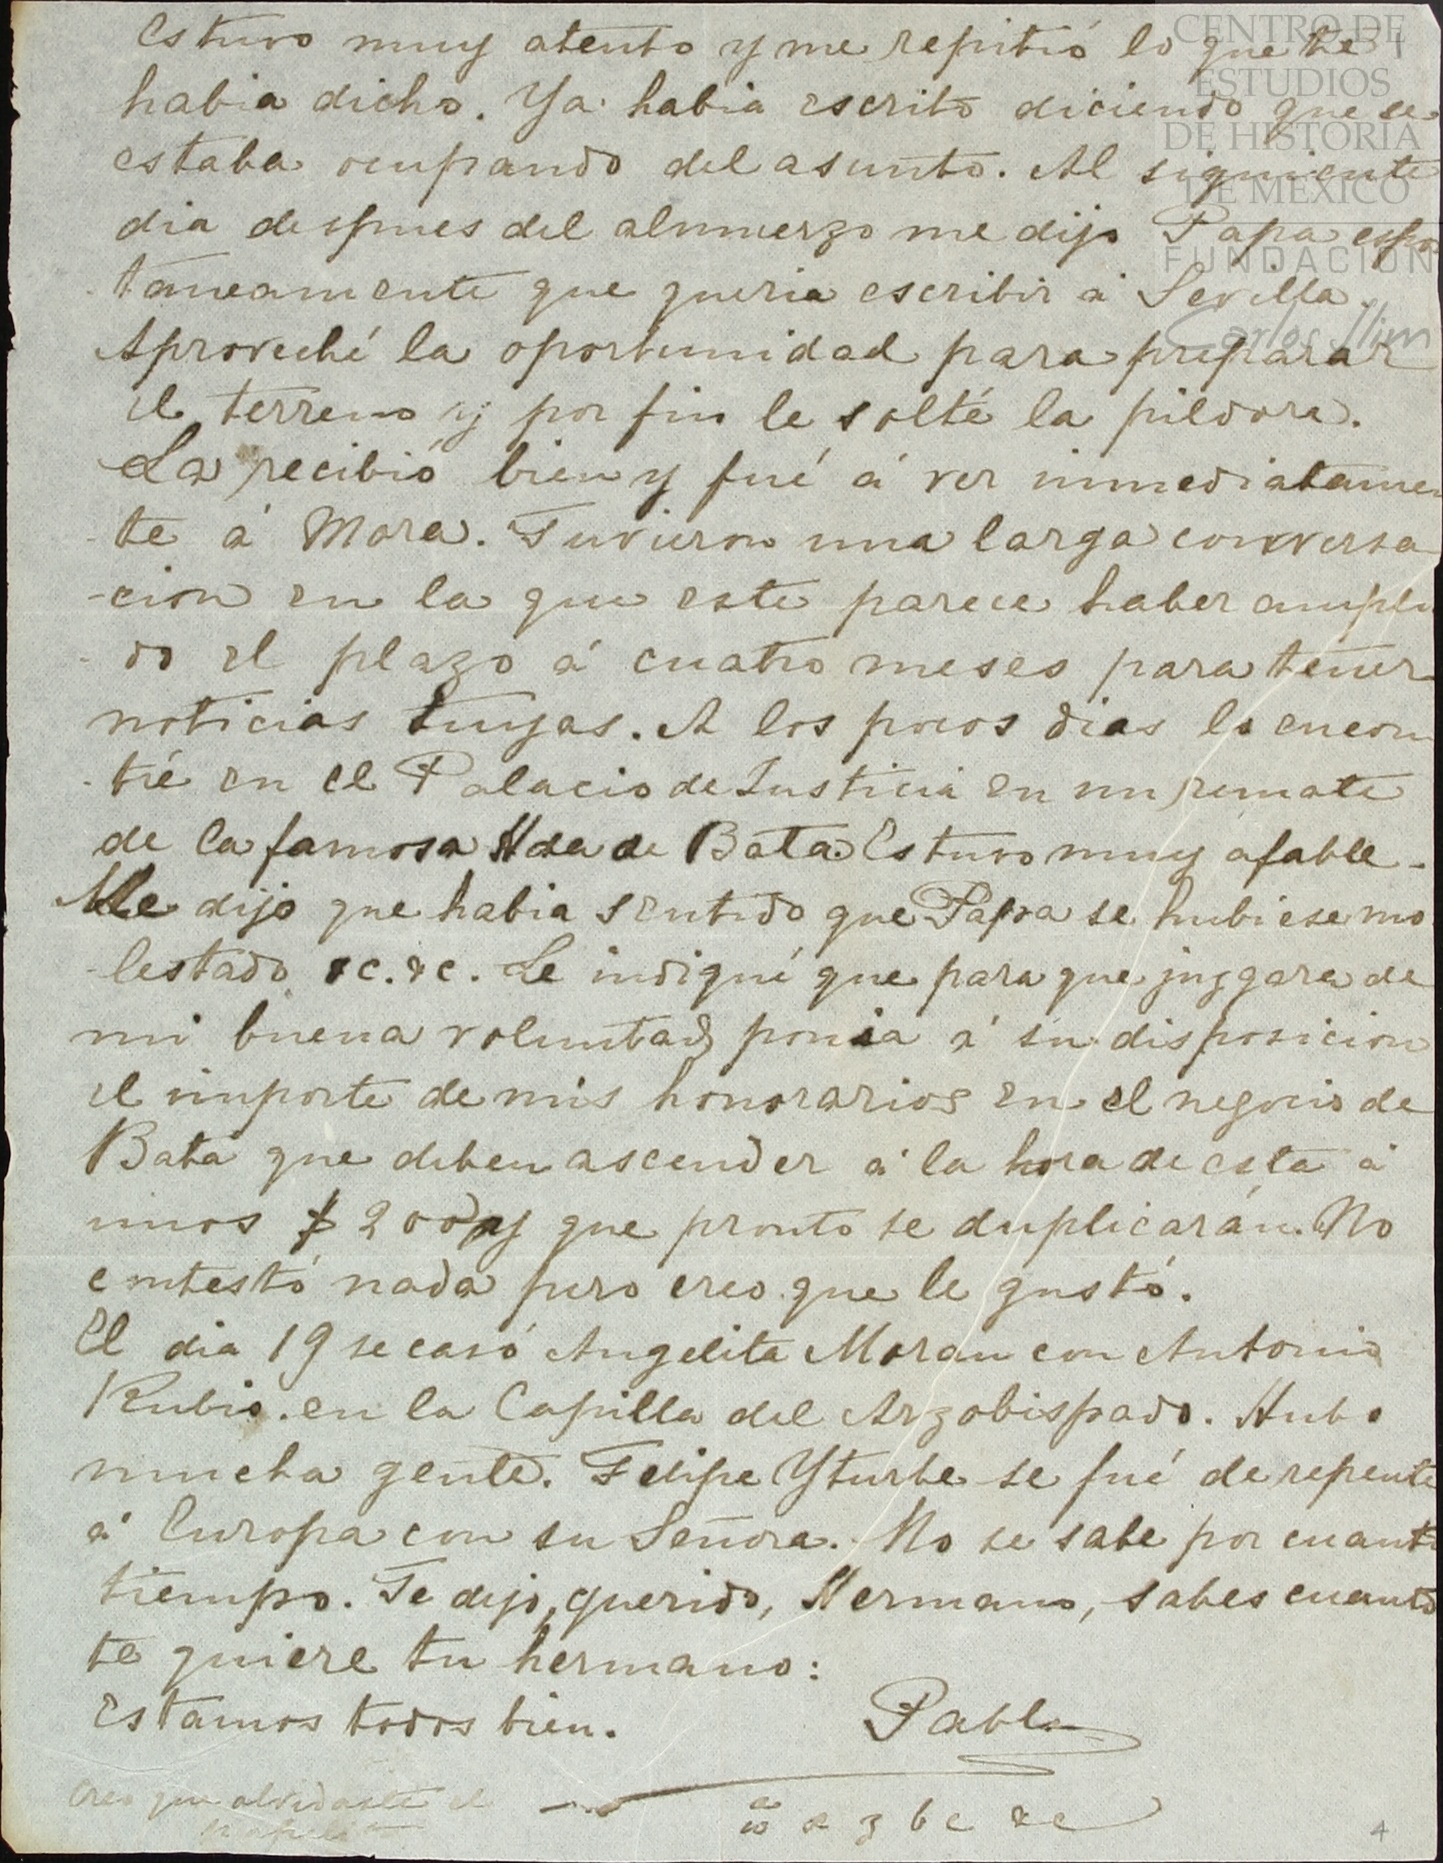 estuvo muy atento y me repitió lo que te
habia dicho. Ya habia escrito diciendo que se
estaba ocupando del asunto. Al siguiente
dia despues del almuerzo me dijo Papa espon
-taneamente que queria escribir á Sevilla.
Aproveché la oportunidad para preparar
el terreno y por fin le solté la pildora.
La recibió bien y fué á ver inmediatamen
-te á Mora. Tuvieron una larga conversa
-cion en la que este parece haber amplia
-do el plazo á cuatro meses para tener
noticias tuyas. A los pocos dias lo encon
-tré en el Palacio de Justicia en un remate
de la famosa Hda de Bata. Estuvo muy afable.
Me dijo que habia sentido que Papa se hubiese mo
-lestado &c. &c. Le indiqué que para que juzgara de
mi buena voluntad ponia á su disposicion
el importe de mis honorarios en el negocio de
Bata que deben ascender á la hora de esta á
unos $ 200 y que pronto se duplicarán. No
contestó nada pero creo que le gustó.
El dia 19 se casó Angelita Moran con Antonio
Rubio. en la Capilla del Arzobispado. Hubo
mucha gente. Felipe Yturbe se fué de repente
á Europa con su Señora. No se sabe por cuanto
tiempo. Te dejo, querido, Hermano, sabes cuanto
te quiere tu hermano:
Estamos todos bien. Pablo
Creo que olvidaste el
4
CENTRO DE
ESTUDIOS
DE HISTORIA
DE MEXICO
FUNDACION
Carlos Slim